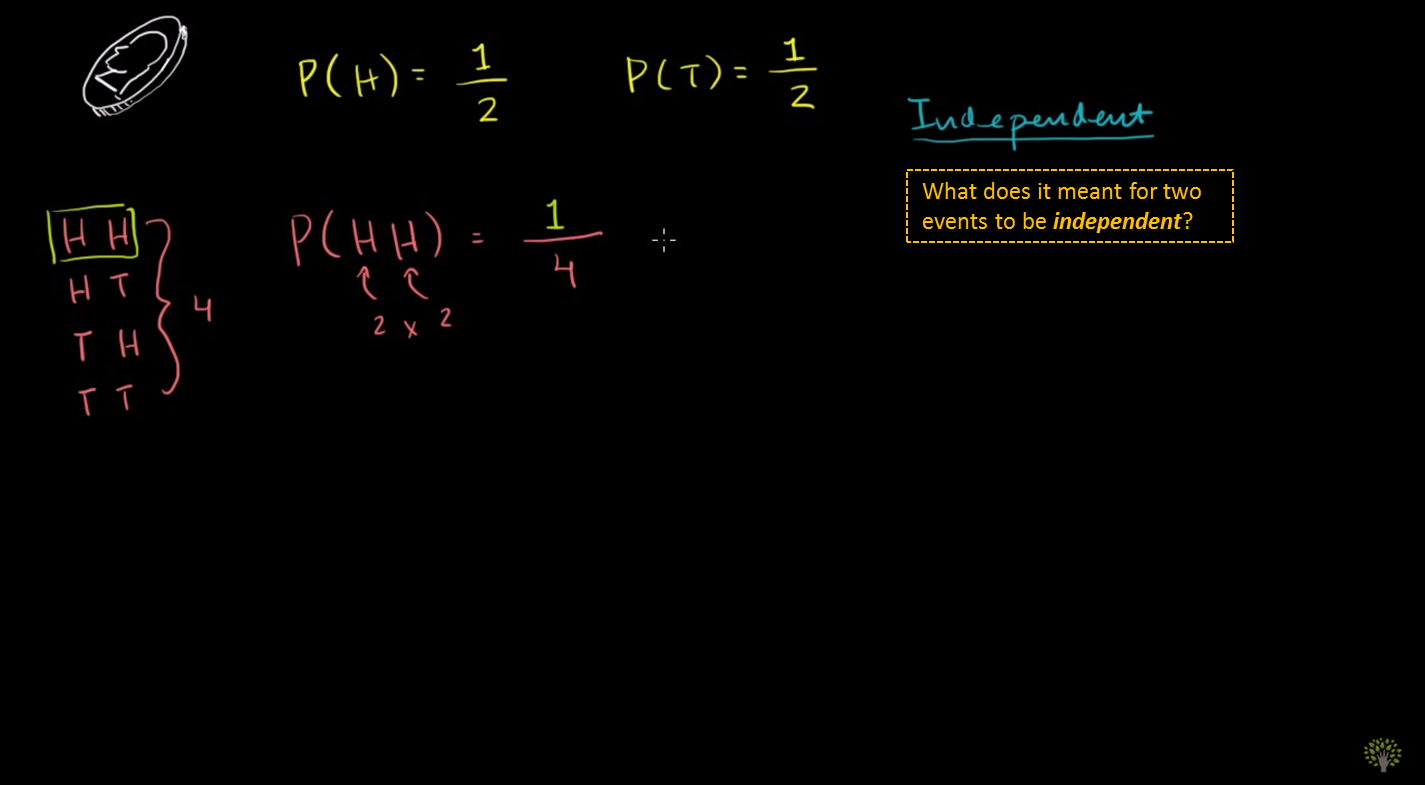 P(H) = 1/2
P(T) = 1/2
Independent
What does it meant for two
events to be independent?
H H
H T
T H
T T
4
P(H H) = 1/4
2 x 2